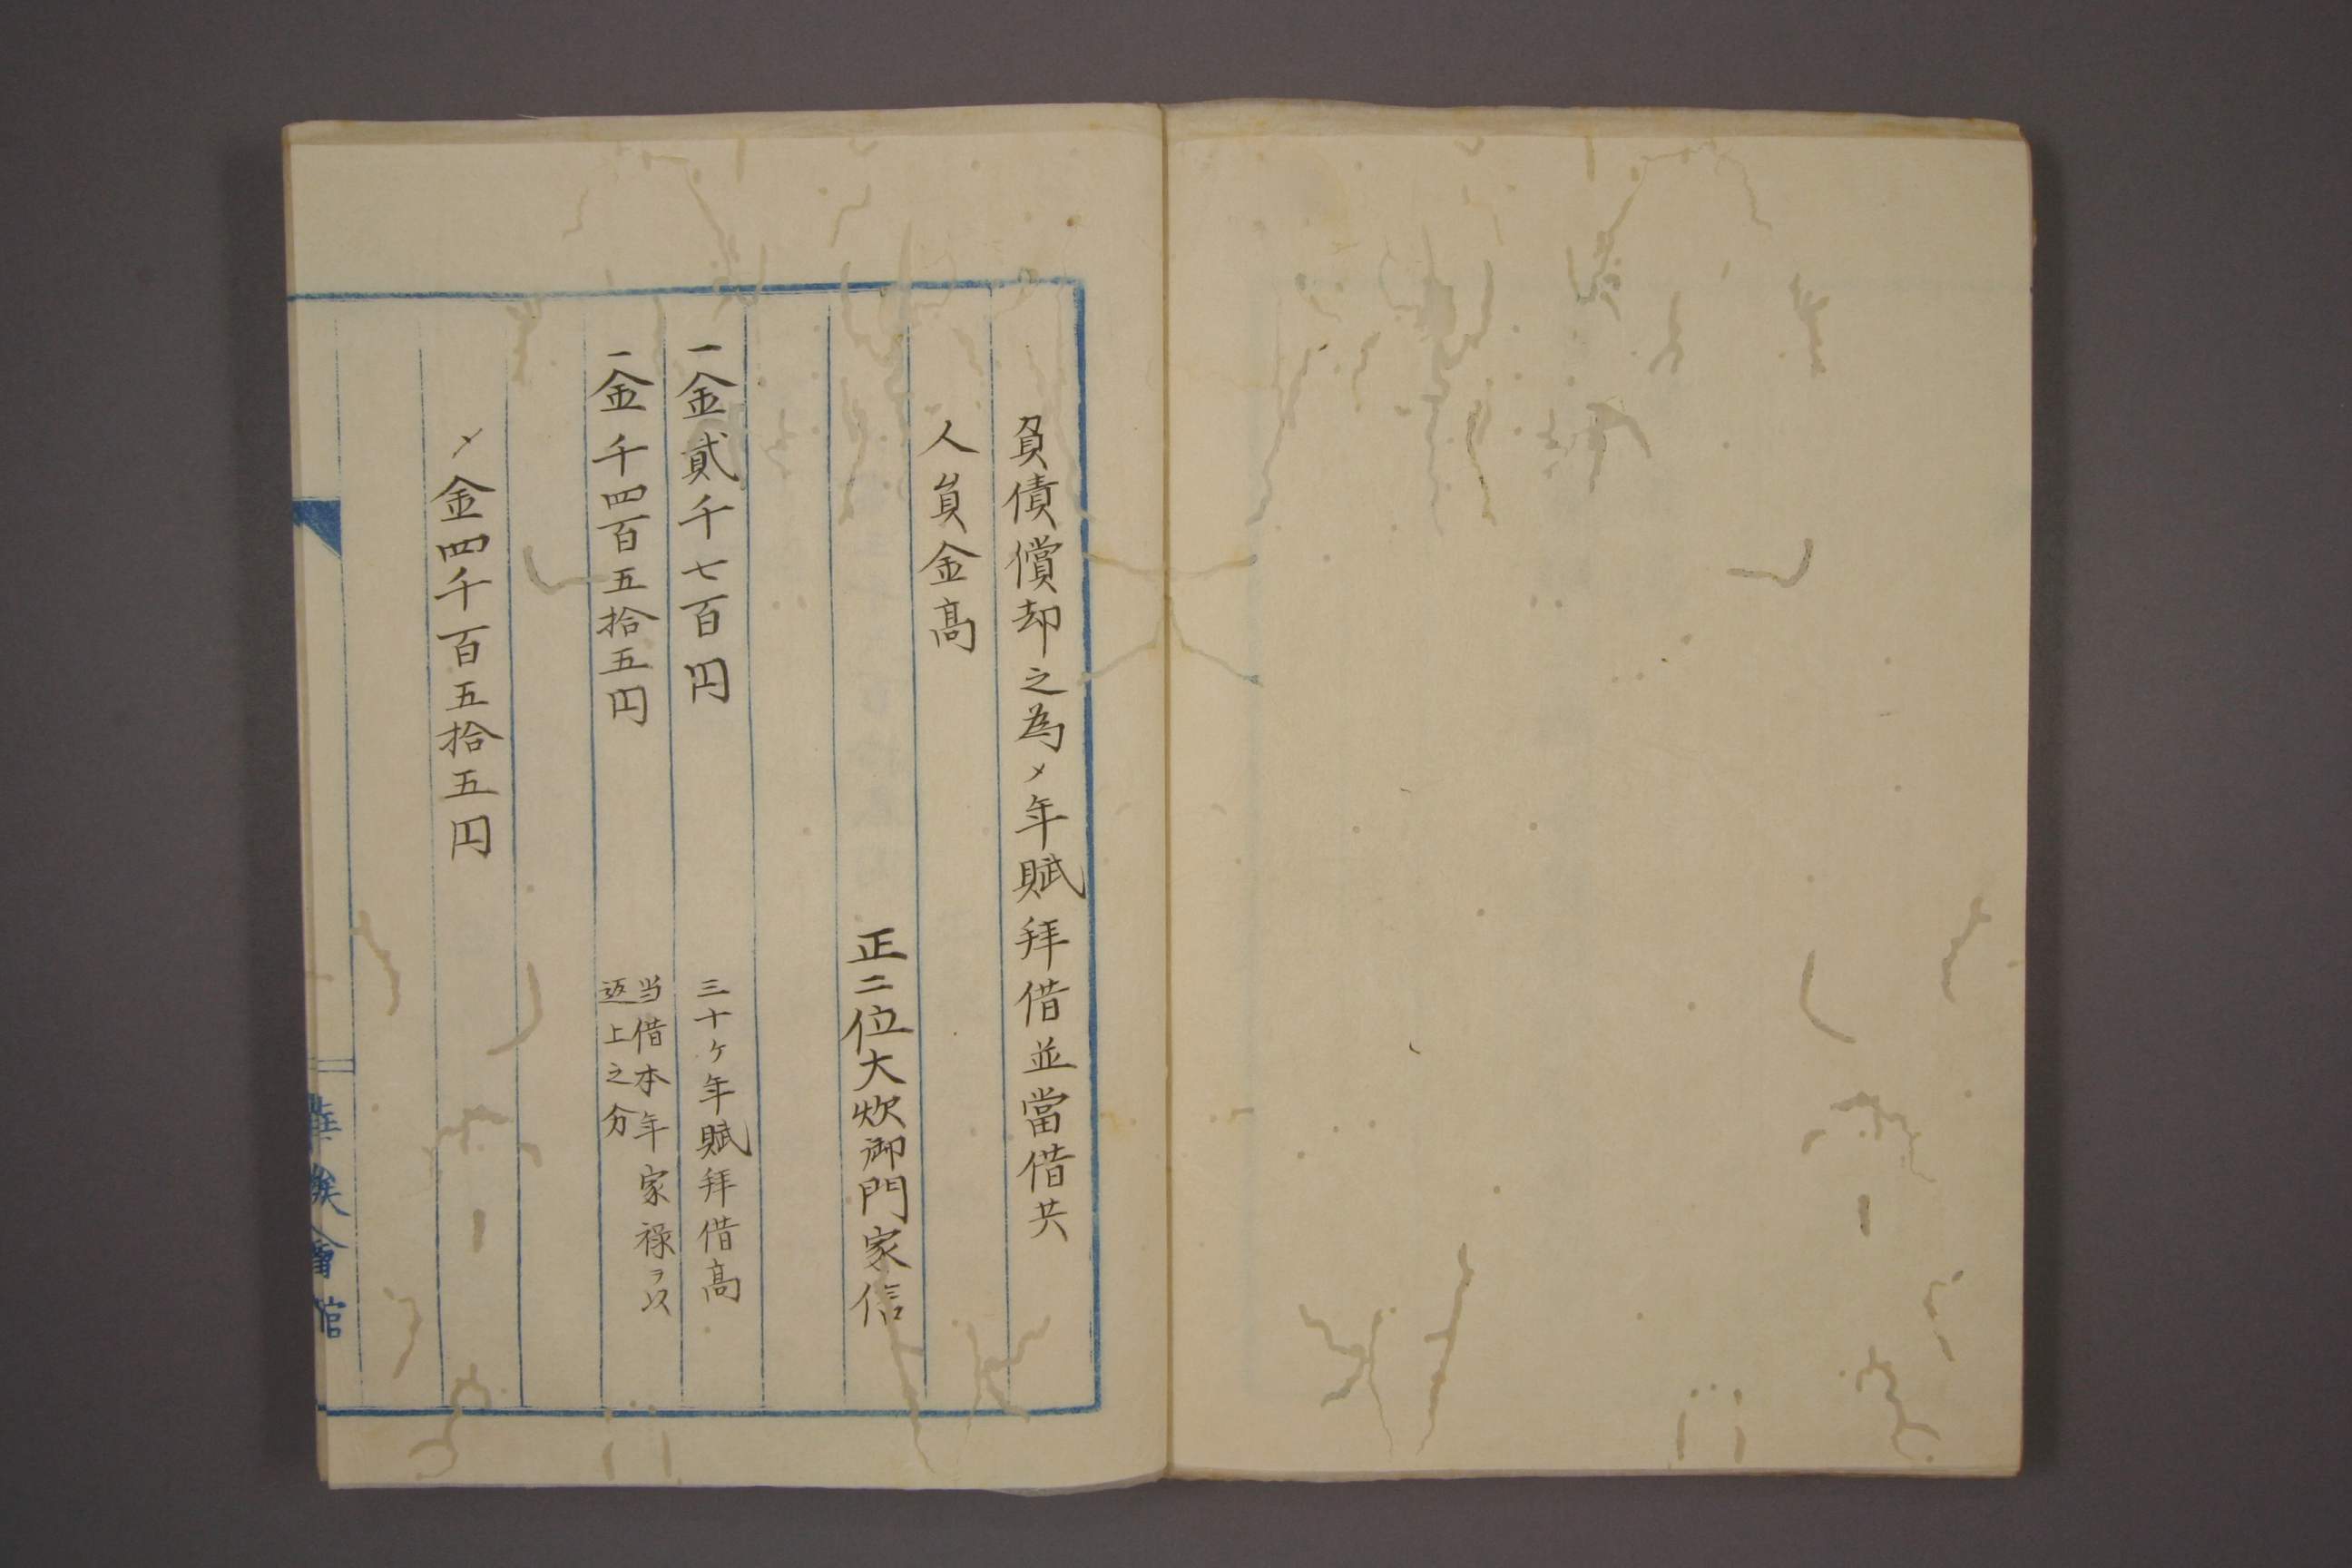 負債償却之為メ年賦拝借並當借共
人員金高
正二位大炊御門家信
一金貳千七百円 三十ヶ年賦拝借高
一金千四百五拾五円 当借本年家禄ヲ以
返上之分
〆金四千百五拾五円
華族會館